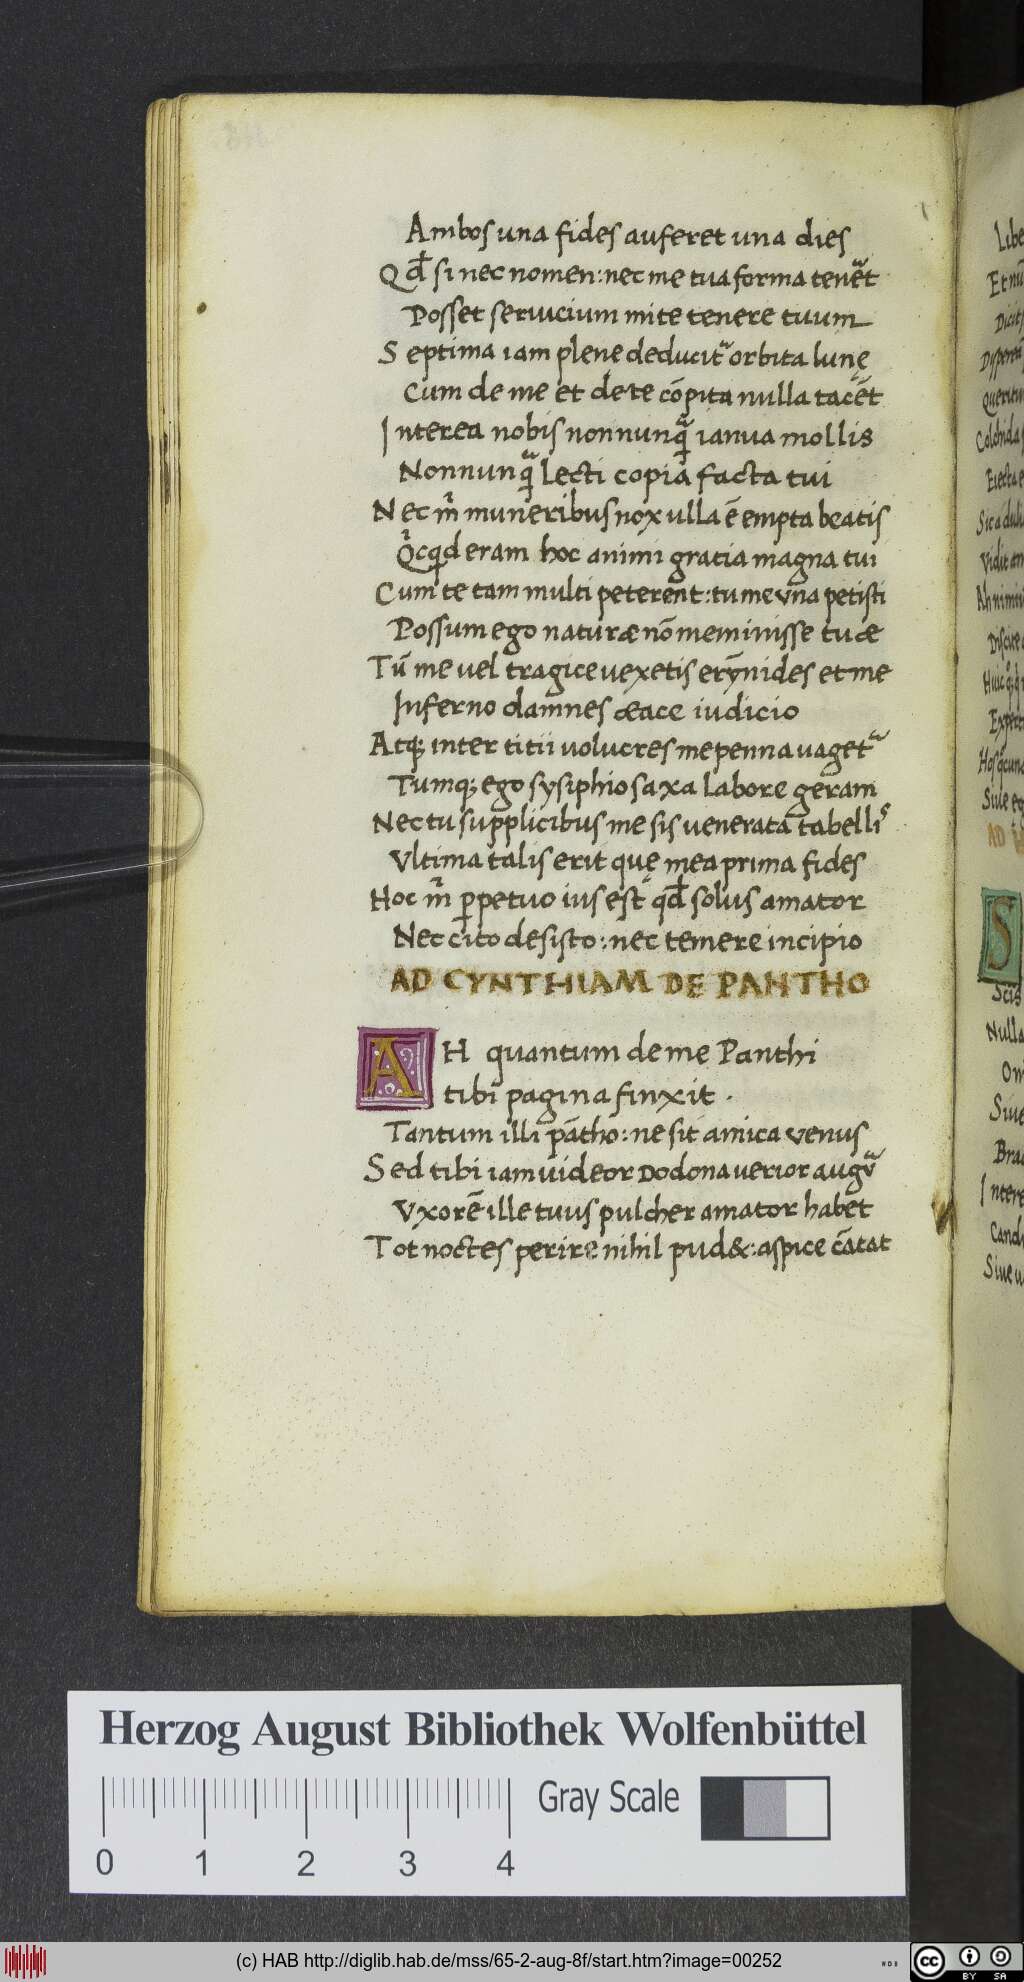 Ambos una fides auferet una dies
Qd̄ si nec nomen: nec me tua forma tenēt
Posset servicium mite tenere tuum
Septima iam plene deducit᷑ orbita lunę
Cum de me et de te cōpita nulla tacēt
Interea nobis nonnunq̄ ianua mollis
Nonnunq̄ lecti copia facta tui
Nec m̄ muneribus nox ulla ē empta beatis
Qͥcqd eram hoc animi gratia magna tui
Cum te tam multi peterent: tu me una petisti
Possum ego naturæ nō meminisse tuæ
Tū me vel tragice vexetis erynnides et me
Inferno damnes æace iudicio
Atq; inter titii volucres me penna vaget᷑
Tumq; ego sysiphio saxa labore geram
Nec tu supplicibus me sis venerata tabellis
Ultima talis erit quę mea prima fides
Hoc m̄ ꝑpetuo ius est qd̄ solus amator
Nec cito desisto: nec temere incipio
AD CYNTHIAM DE PANTHO
AH quantum de me Panthi
tibi pagina finxit.
Tantum illi pātho: ne sit amica venus
Sed tibi iam videor Dodona verior augū
Uxorē ille tuus pulcher amator habet
Tot noctes perire nihil pud&: aspice cātat
Herzog August Bibliothek Wolfenbüttel
Gray Scale
0 1 2 3 4
(c) HAB http://diglib.hab.de/mss/65-2-aug-8f/start.htm?image=00252
cc BY SA